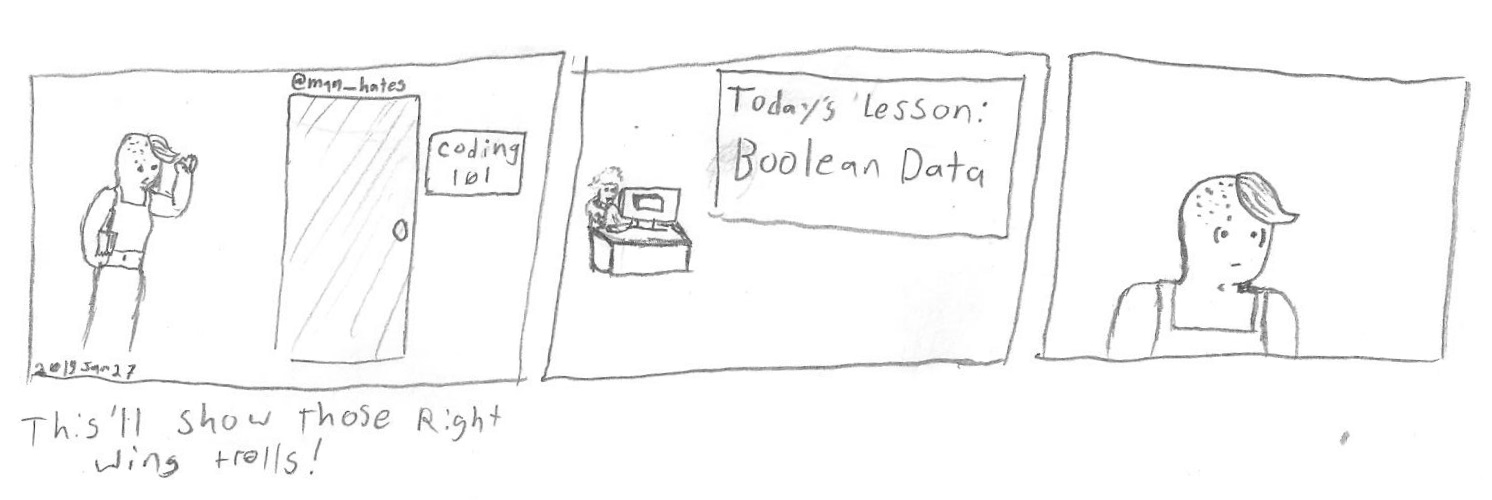 @mgn_hates
coding
101
2019 Jan 27
This'll show those Right
wing trolls!
Today's Lesson:
Boolean Data